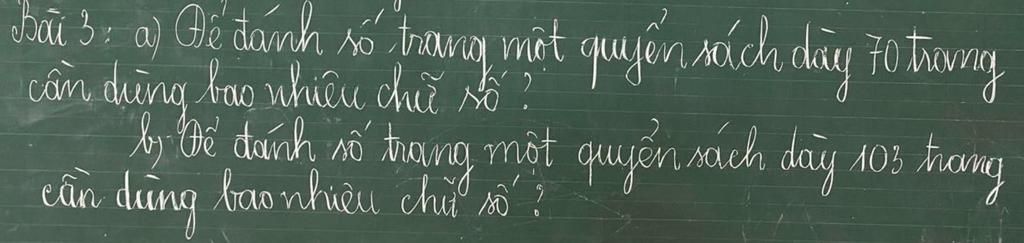 Bài 3: a) Để đánh số trang một quyển sách dày 70 trang
cần dùng bao nhiêu chữ số?
b) Để đánh số trang một quyển sách dày 103 trang
cần dùng bao nhiêu chữ số?